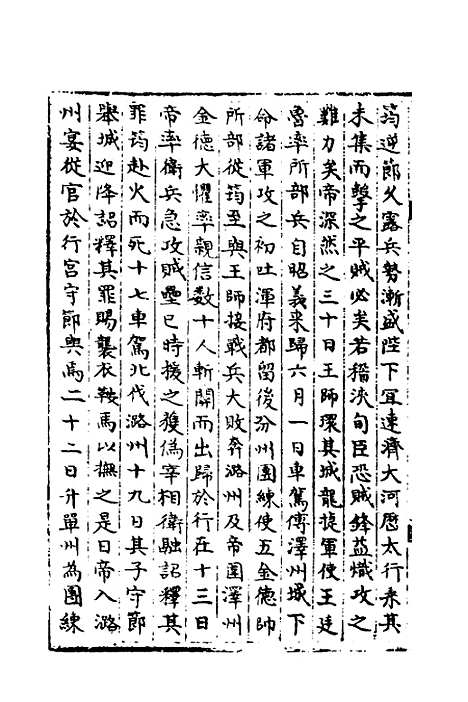 筠逆節久露兵勢漸盛陛下宜速濟大河歷太行乘其
未集而擊之平賊必矣若稽浹旬臣恐賊鋒益熾攻之
難力矣帝深然之三十日王師環其城龍捷軍使王廷
魯率所部兵自昭義來歸六月一日車駕傅澤州城下
命諸軍攻之初吐渾府都留後汾州團練使王金德帥
所部從筠至與王師接戰兵大敗奔潞州及帝圍澤州
金德大懼率親信數十人斬關而出歸於行在十三日
帝率衛兵急攻賊壘巳時援之獲偽宰相衛融詔釋其
罪筠赴火而死十七車駕北伐潞州十九日其子守節
舉城迎降詔釋其罪賜襲衣鞍馬以撫之是日帝入潞
州宴從官於行宮守節與焉二十二日升單州為團練